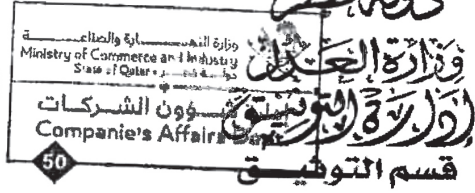 دولة قطر
وزارة العدل
إدارة التوثيق
قسم التوثيق
وزارة التجـــــارة والصناعـــــة
Ministry of Commerce and Industry
State of Qatar دولـــة قطـــر
شـــؤون الشـــركـات
Companie's Affairs
50